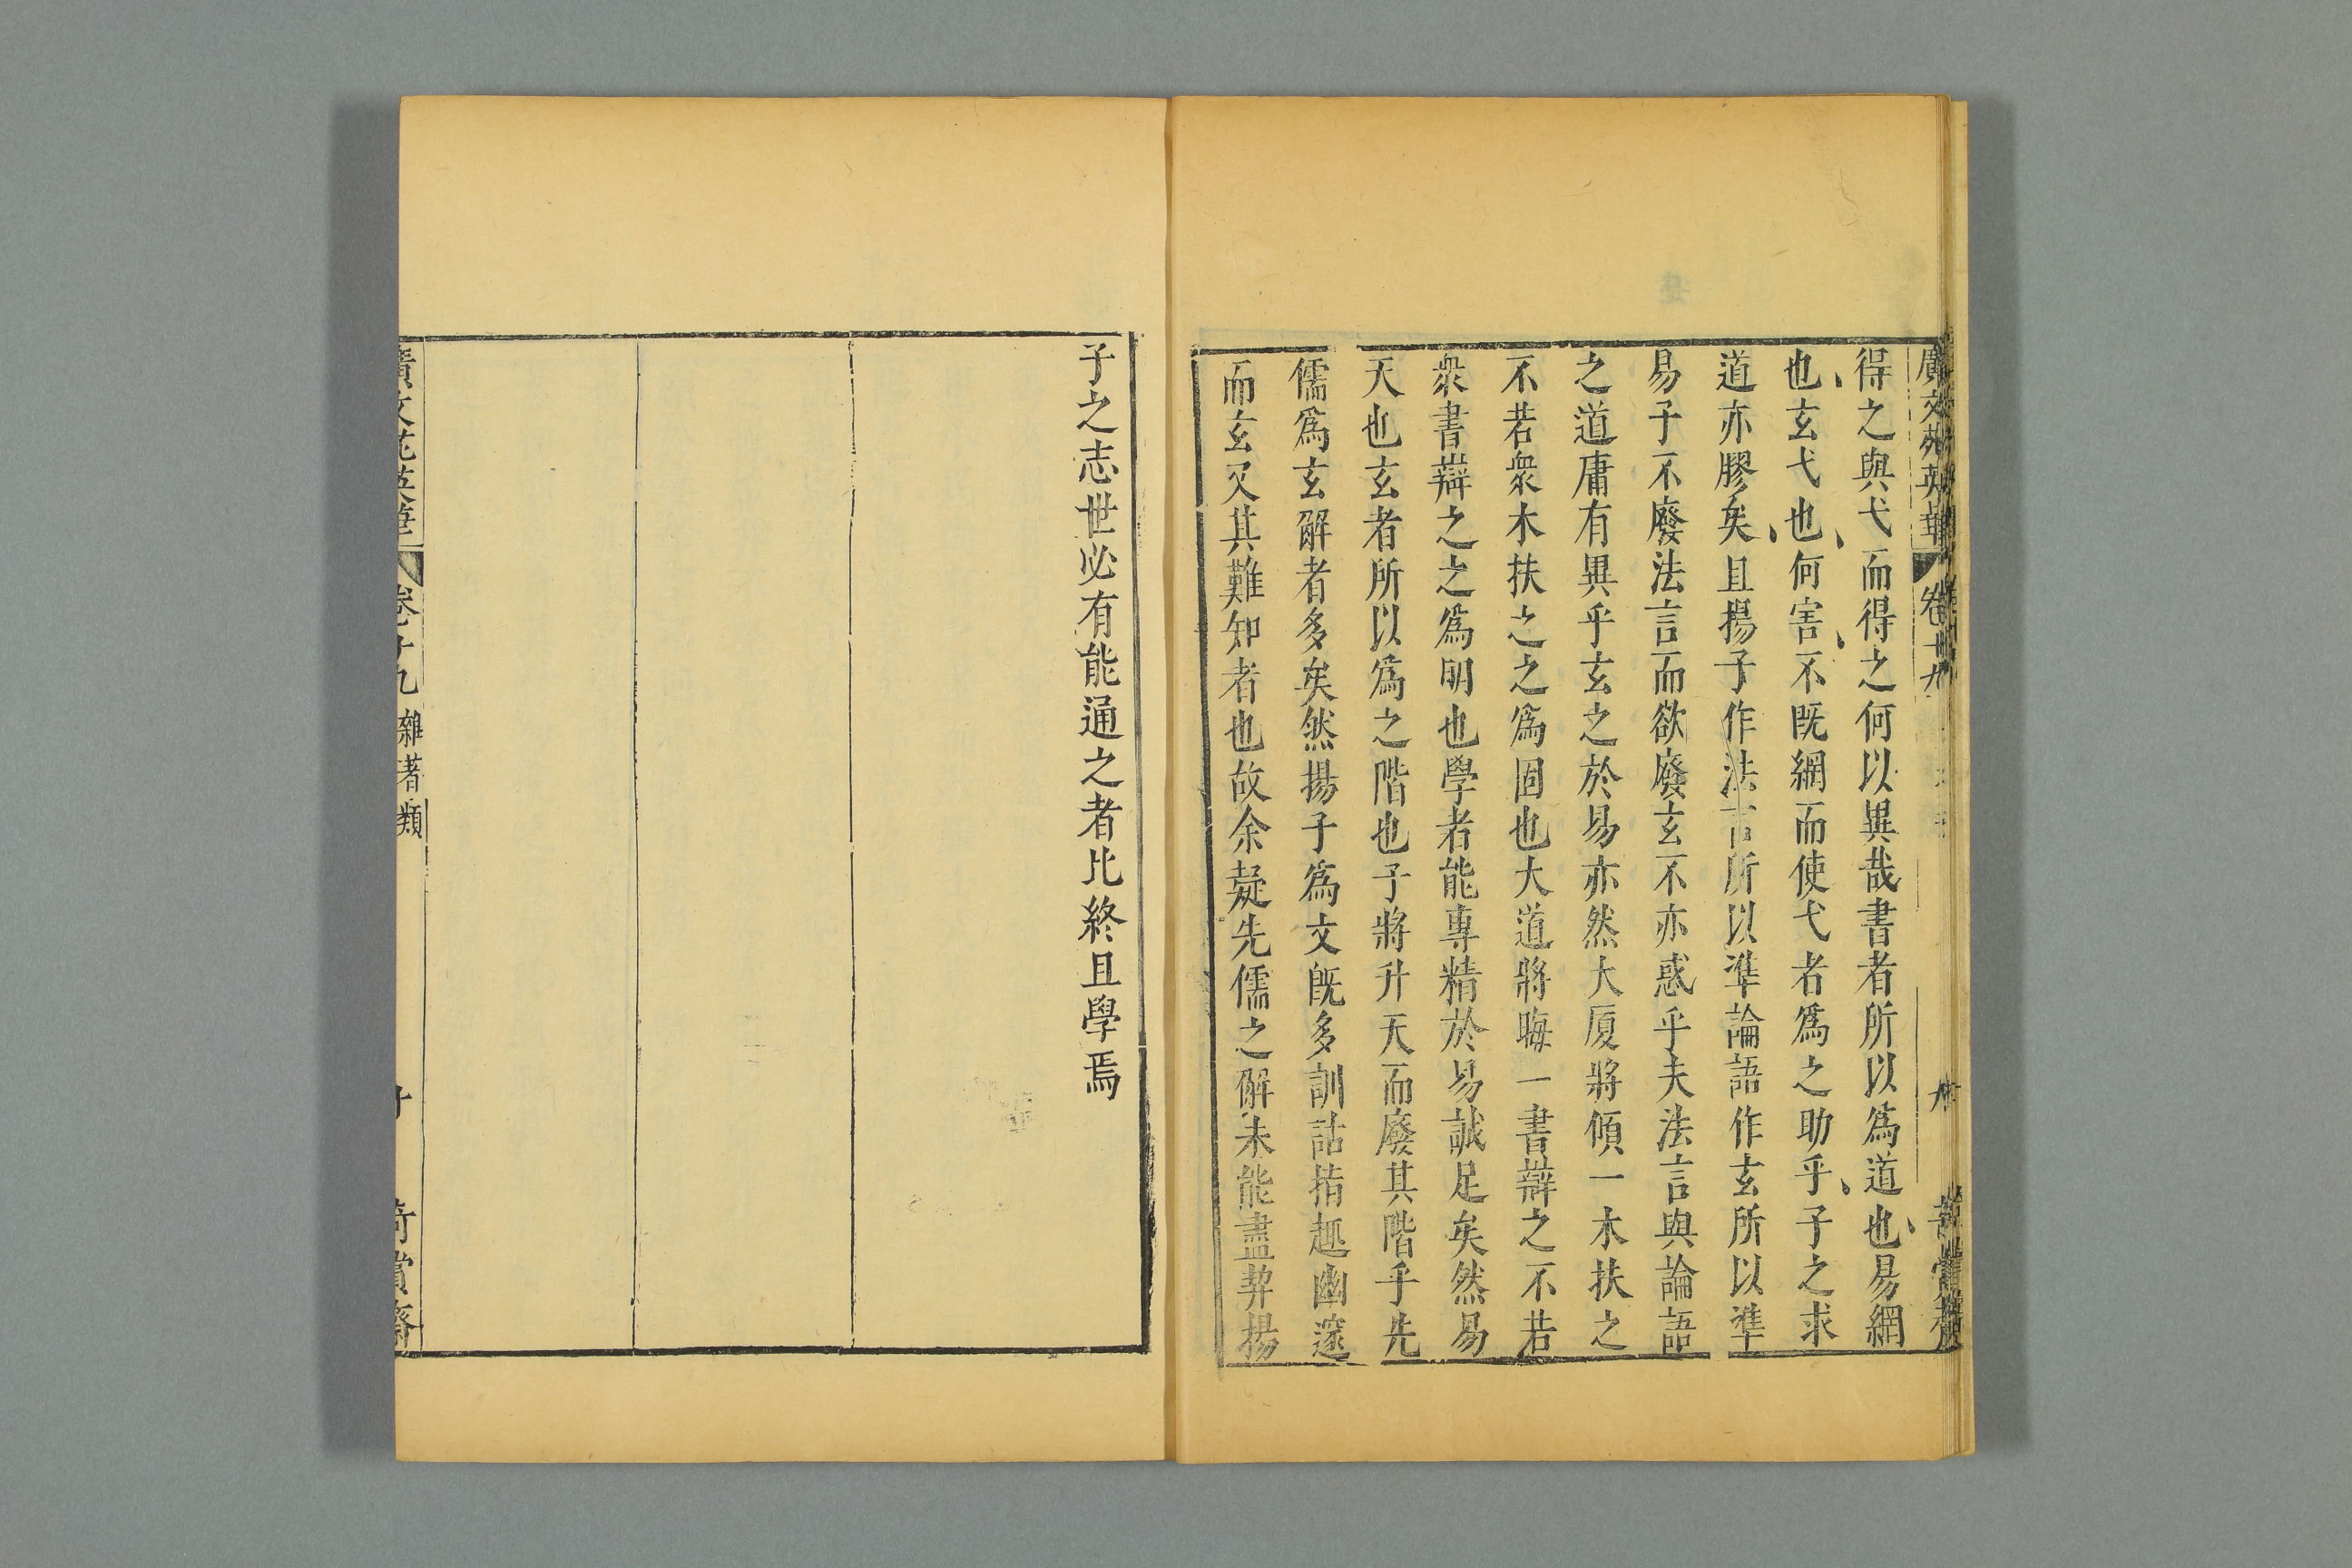 廣文苑英華 卷十九 九
得之與弋而得之何以異哉書者所以爲道也易網
也玄弋也何害不既網而使弋者爲之助乎子之求
道亦膠矣且揚子作法言所以準論語作玄所以準
易子不廢法言而欲廢玄不亦惑乎夫法言與論語
之道庸有異乎玄之於易亦然大厦將傾一木扶之
不若衆木扶之之爲固也大道將晦一書辯之不若
衆書辯之之爲明也學者能專精於易誠足矣然易
天也玄者所以爲之階也子將升天而廢其階乎先
儒爲玄解者多矣然揚子爲文既多訓詁指趣幽邃
而玄又其難知者也故余疑先儒之解未能盡契揚
子之志世必有能通之者比終且學焉
廣文苑英華 卷十九 雜著類 十 奇賞齋